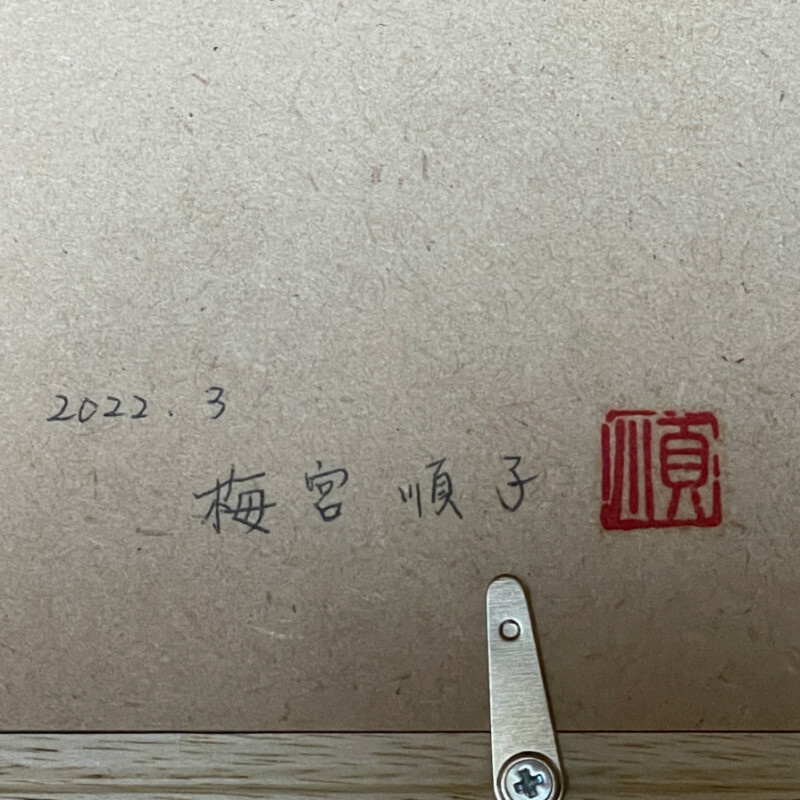 2022.3
梅宮順子
順